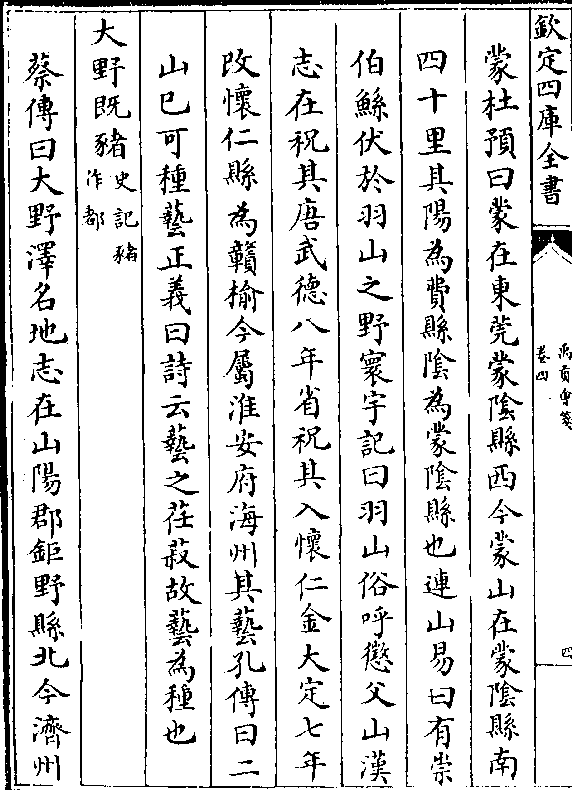 欽定四庫全書
禹貢會箋
卷四
四
蒙杜預曰蒙在東莞蒙陰縣西今蒙山在蒙陰縣南
四十里其陽為費縣陰為蒙陰縣也連山易曰有崇
伯鯀伏於羽山之野寰宇記曰羽山俗呼懲父山漢
志在祝其唐武德八年省祝其入懷仁金大定七年
改懷仁縣為贛榆今屬淮安府海州其藝孔傳曰二
山已可種藝正義曰詩云藝之荏菽故藝為種也
大野既豬史記豬作都
蔡傳曰大野澤名地志在山陽郡鉅野縣北今濟州